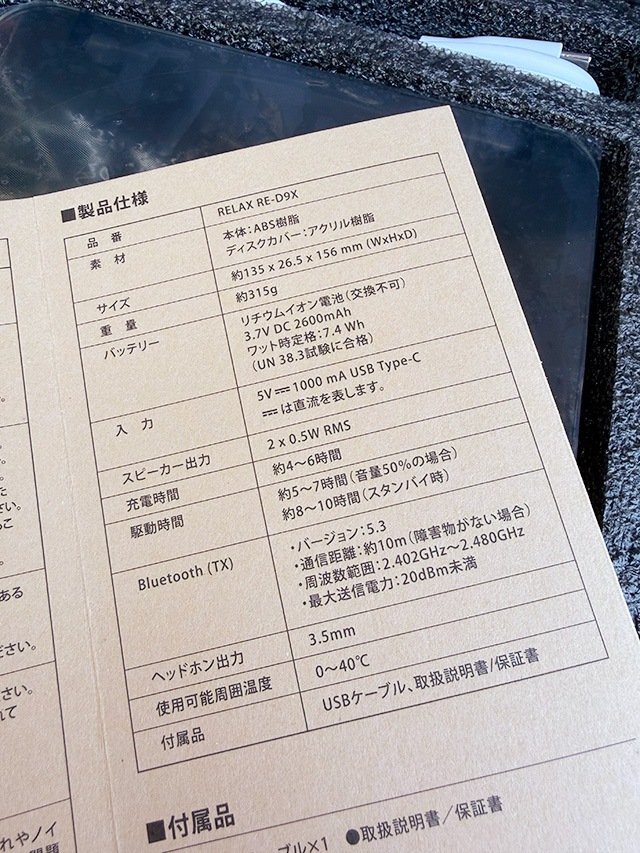 ■製品仕様
品 番 RELAX RE-D9X
素 材 本体：ABS樹脂
ディスクカバー：アクリル樹脂
サイズ 約135 x 26.5 x 156 mm (WxHxD)
重 量 約315g
バッテリー リチウムイオン電池（交換不可）
3.7V DC 2600mAh
ワット時定格：7.4 Wh
（UN 38.3試験に合格）
入 力 5V⎓1000 mA USB Type-C
⎓は直流を表します。
スピーカー出力 2 x 0.5W RMS
充電時間 約4～6時間
駆動時間 約5～7時間（音量50%の場合）
約8～10時間（スタンバイ時）
Bluetooth (TX) ・バージョン：5.3
・通信距離：約10m（障害物がない場合）
・周波数範囲：2.402GHz～2.480GHz
・最大送信電力：20dBm未満
ヘッドホン出力 3.5mm
使用可能周囲温度 0～40℃
付属品 USBケーブル、取扱説明書/保証書
■付属品
ブル×1 ●取扱説明書／保証書
ある
ださい。
さい。
れて
れやノイ
問題